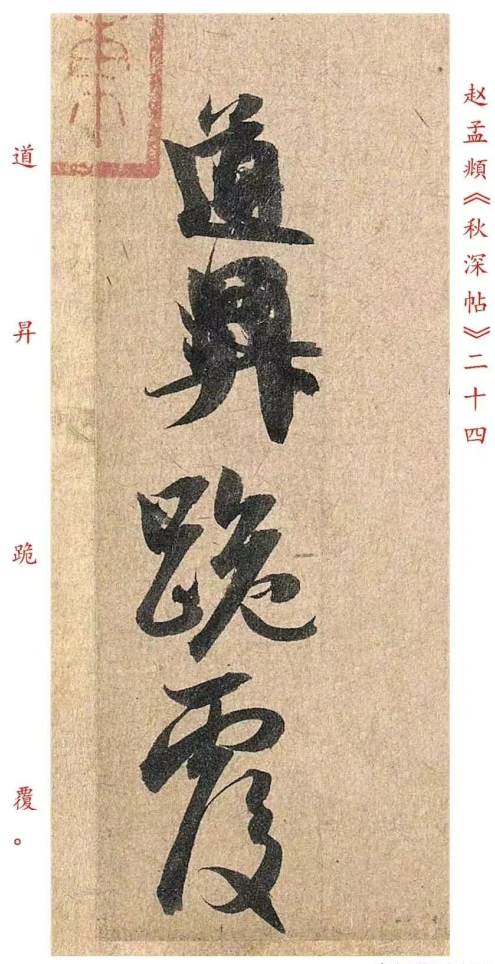 赵孟頫《秋深帖》二十四
道昇跪覆
道昇跪覆。